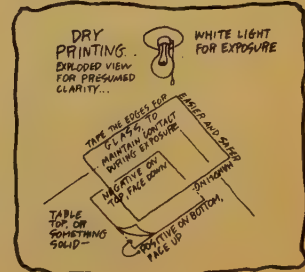 DRY
PRINTING..
EXPLODED VIEW
FOR PRESUMED
CLARITY...
WHITE LIGHT
FOR EXPOSURE
TAPE THE EDGES FOR
EASIER AND SAFER
GLASS, TO
MAINTAIN CONTACT
DURING EXPOSURE
NEGATIVE ON
TOP, FACE DOWN
TABLE
TOP, OR
SOMETHING
SOLID—
POSITIVE ON BOTTOM,
FACE UP